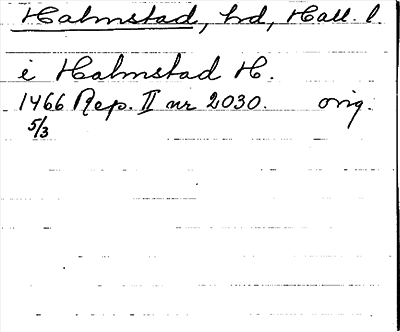 Halmstad, hd, Hall. l.
i Halmstad H.
1466 Rep. II nr 2030. orig.
5/3